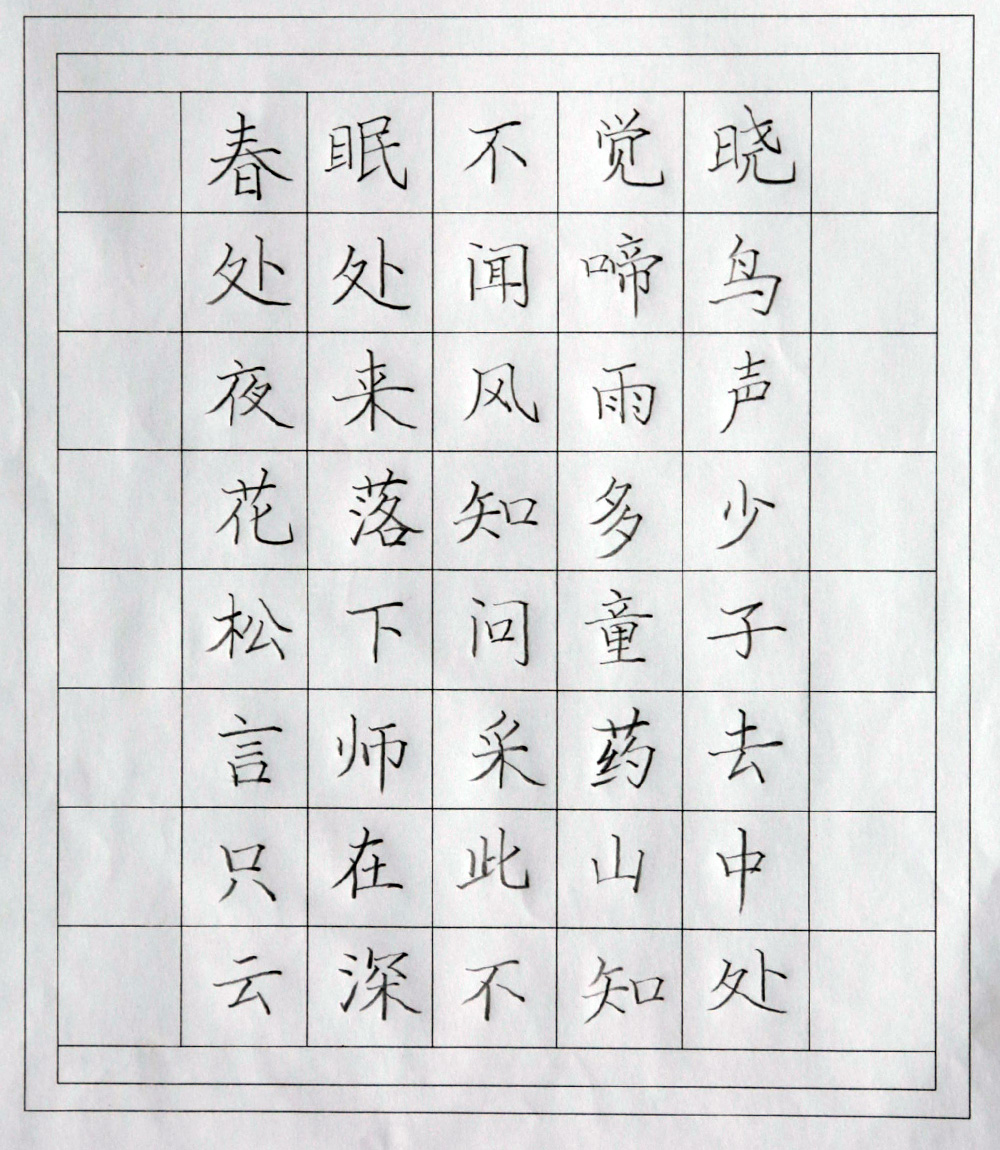 春眠不觉晓
处处闻啼鸟
夜来风雨声
花落知多少
松下问童子
言师采药去
只在此山中
云深不知处